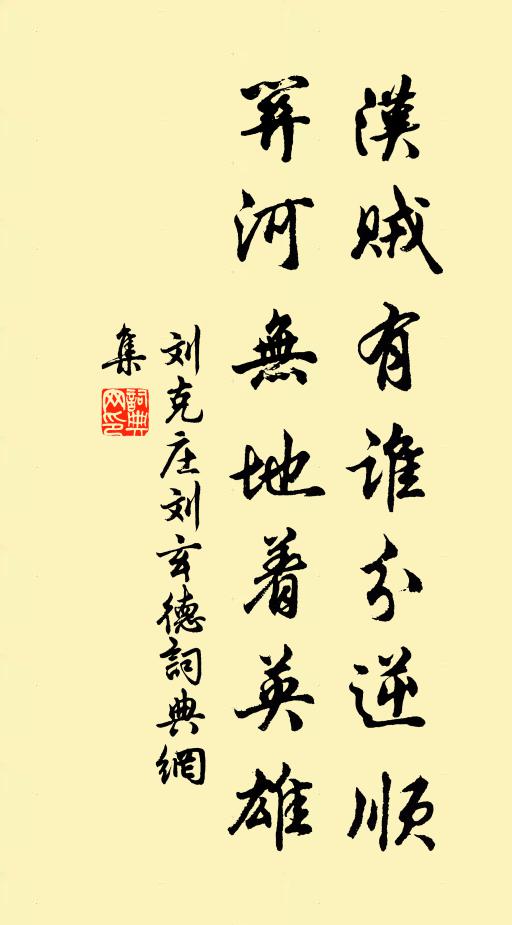 漢賊有誰分逆順
關河無地着英雄
刘克庄刘玄德詞典網
集
詞典
网印